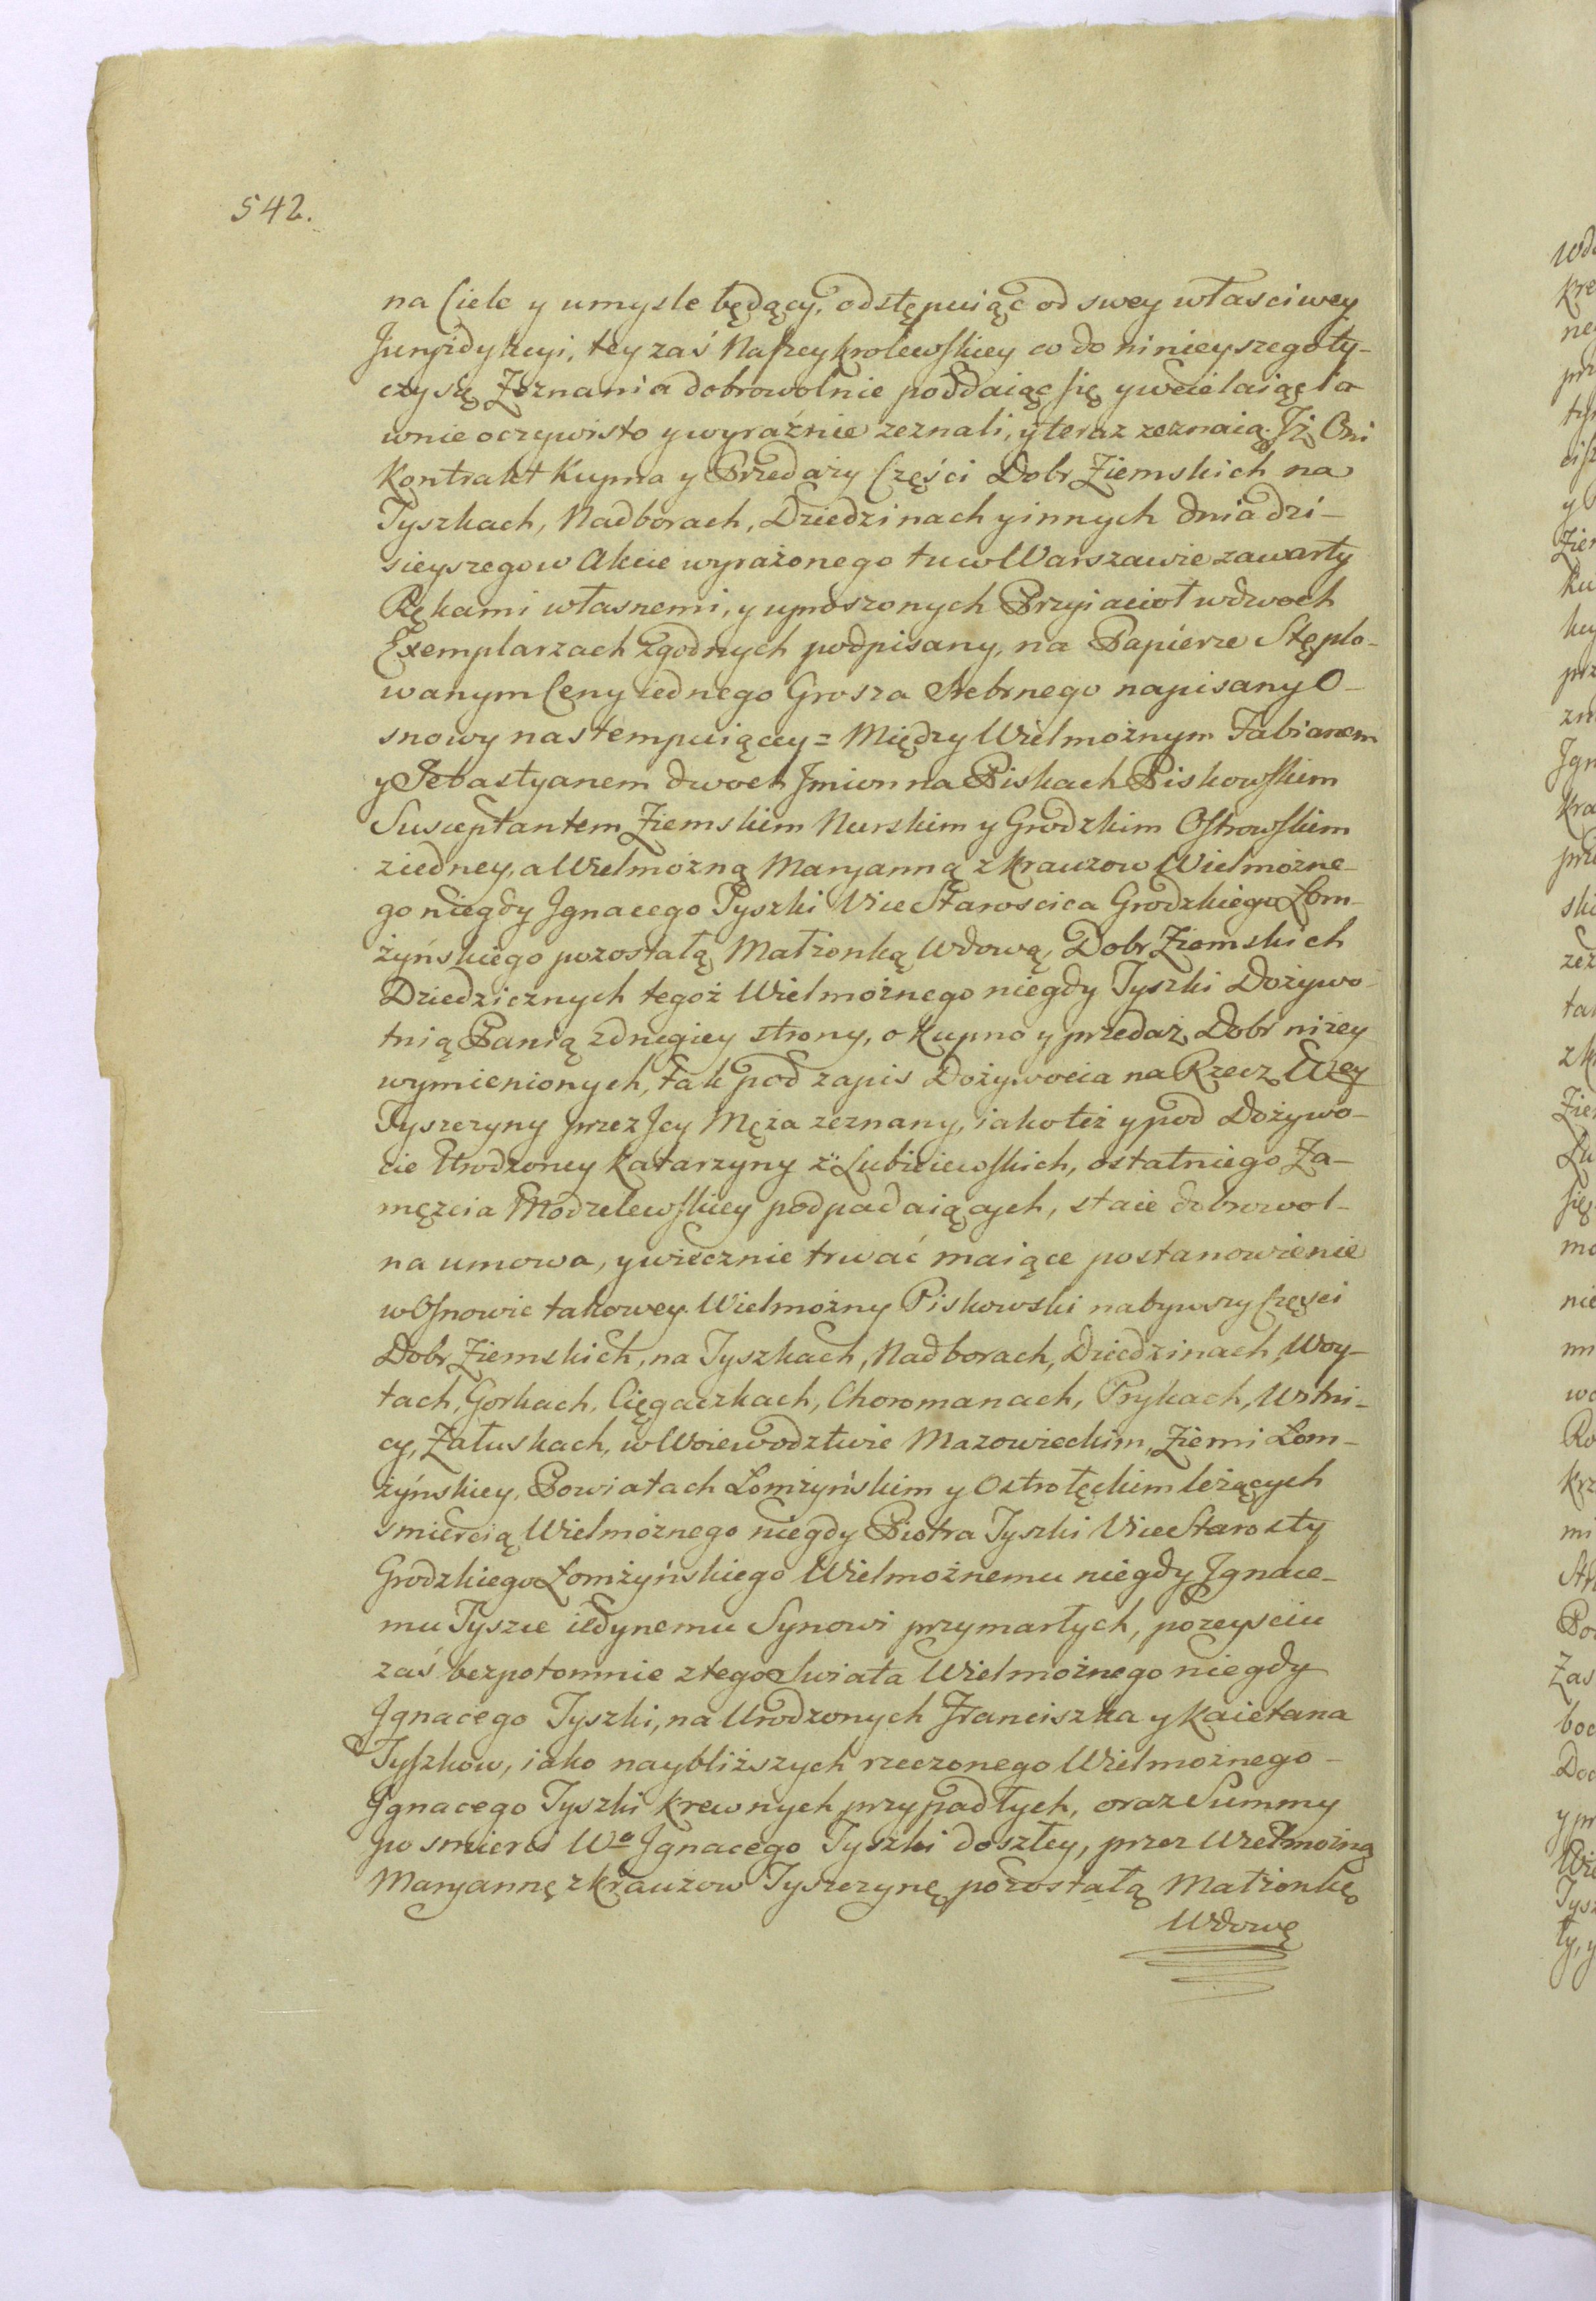 542.
na Ciele y umysle będący, odstępuiąc od swey własciwey
Juryzdykcyi, tey zaś Naszey Krolewskiey co do ninieyszego ty-
czy się Zeznania dobrowolnie poddaiąc się y wcielaiąc Ia-
wnie oczywisto y wyraźnie zeznali, y teraz zeznaią. Jż Oni
Kontrakt Kupna y Przedaży Części Dobr Ziemskich na
Tyszkach, Nadborach, Dziedzinach y innych dnia dzi-
sieyszego w Akcie wyrażonego tu w Warszawie zawarty
Rękami własnemi, y uproszonych Przyiacioł w dwoch
Exemplarzach zgodnych podpisany, na Papierze Stęplo-
wanym Ceny iednego Grosza Srebrnego napisany O-
snowy nastempuiącey = Między Wielmożnym Fabianem
y Sebastyanem dwoch Jmion na Piskach Piskowskim
Susceptantem Ziemskim Nurskim y Grodzkim Ostrowskim
z iedney, a Wielmożną Maryanną z Krauzow Wielmożne-
go niegdy Jgnacego Tyszki Vice Staroscica Grodzkiego Łom-
żyńskiego pozostałą Małżonką Wdową, Dobr Ziemskich
Dziedzicznych tegoż Wielmożnego niegdy Tyszki Dożywo-
tnią Panią z drugiey strony, o kupno y przedaż Dobr niżey
wymienionych, tak pod zapis Dożywocia na Rzecz Wey
Tyszczyny przez Jey Męża zeznany, iako też y pod Dożywo-
cie Urodzoney Katarzyny z Lubieiewskich, ostatniego Za-
męzcia Modzelewskiey podpadaiących, staie dobrowol-
na umowa, y wiecznie trwać maiące postanowienie
w Osnowie takowey. Wielmożny Piskowski nabywszy Części
Dobr Ziemskich, na Tyszkach, Nadborach, Dziedzinach, Woy-
tach, Gorkach, Cięgaczkach, Choromanach, Ptykach, Ustni-
cy, Załuskach, w Woiewodztwie Mazowieckim, Ziemi Łom-
żyńskiey, Powiatach Łomżyńskim y Ostrołęckim leżących
smiercią Wielmożnego niegdy Piotra Tyszki Vice Starosty
Grodzkiego Łomżyńskiego Wielmożnemu niegdy Jgnace-
mu Tyszce iedynemu Synowi przymarłych, po zeysciu
zaś bezpotomnie z tego Swiata Wielmożnego niegdy
Jgnacego Tyszki, na Urodzonych Franciszka y Kaietana
Tyszkow, iako naybliższych rzeczonego Wielmożnego -
Jgnacego Tyszki krewnych przypadłych, oraz Summy
po smierci Wo Jgnacego Tyszki doszłey, przez Wielmożną
Maryannę z Krauzow Tyszczynę pozostałą Małżonkę
Wdowę